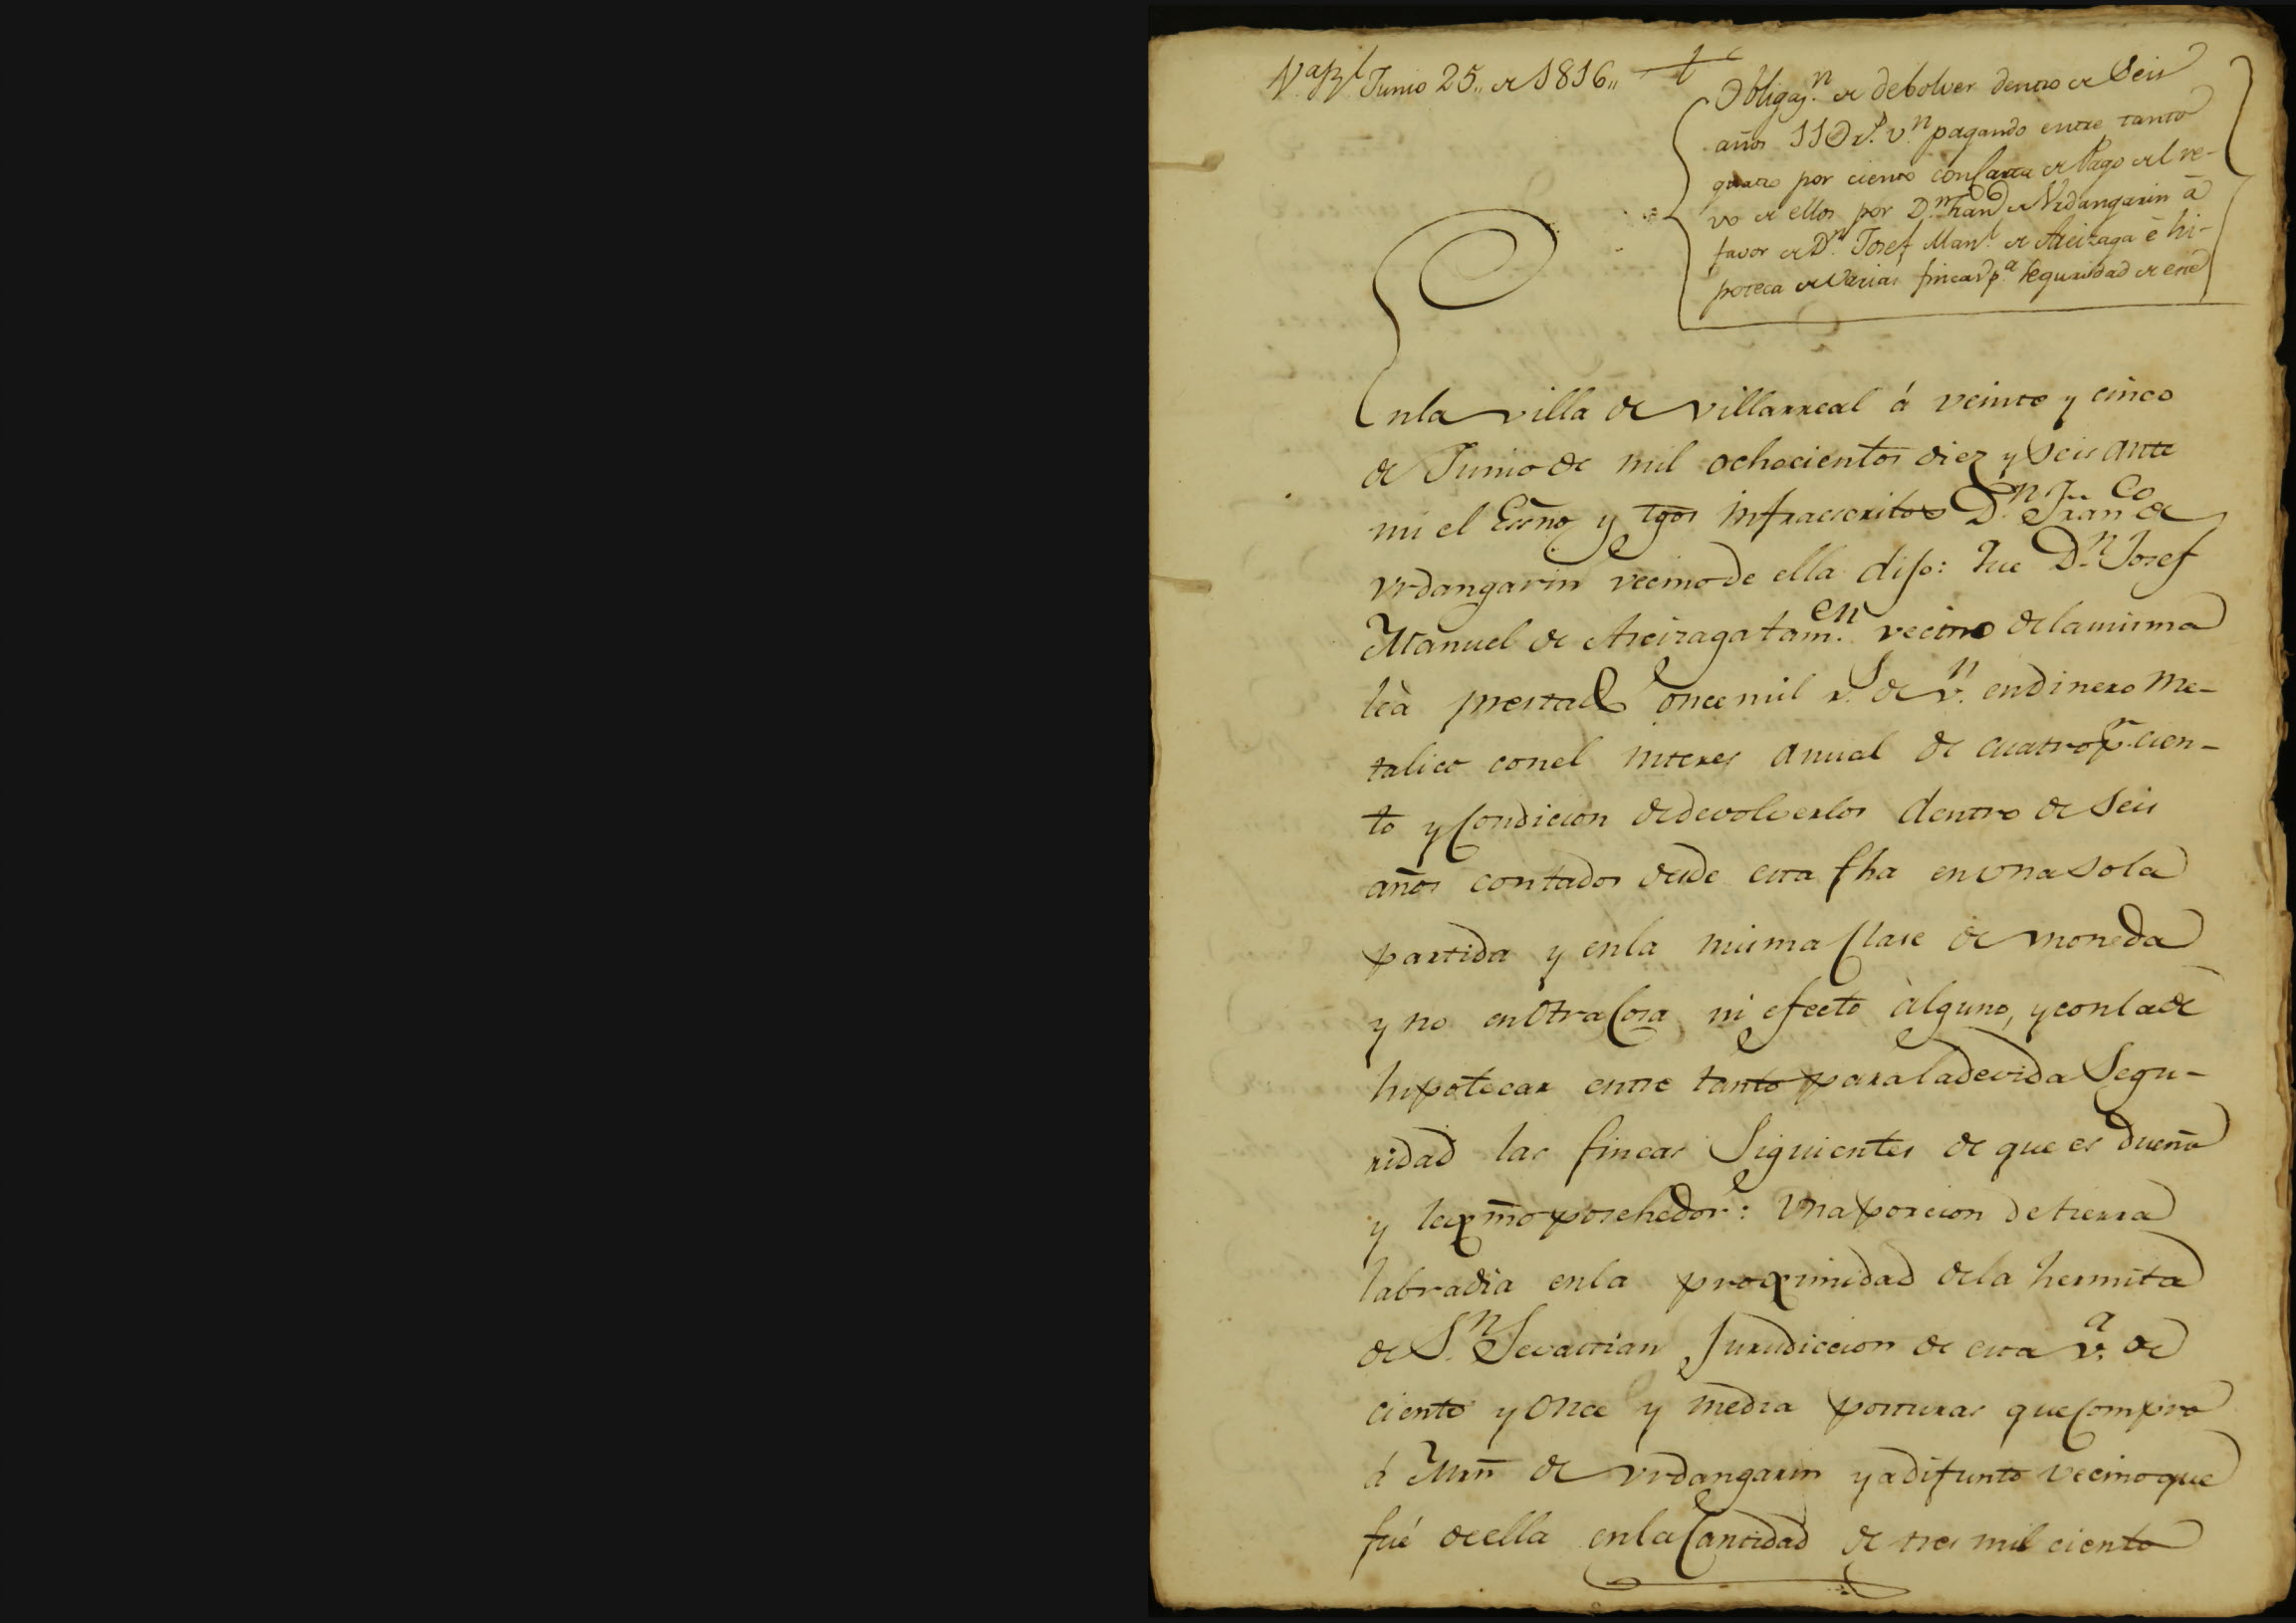 V.ª R.l Junio 25,, de 1816,,
Obligaz.n de debolver dentro de Seis
años 11D r.s v.n pagando entre tanto
quatro por ciento con Carta de Pago del re-
vo de ellos por D.n Fran.co de Vrdangarin à
favor de D.n Josef Man.l de Areizaga è hi-
poteca de varias fincas p.a seguridad de este
Enla villa de Villarreal á veinte y cinco
de Junio de mil ochocientos diez y Seis ante
mi el Essño y tgos infraescritos D.n Fran.co de
Vrdangarin vecino de ella dijo: Que D.n Josef
Manuel de Areizaga tam.en vecino dela misma
leà prestado once mil r.s de v.n endinero me-
talico conel interes anual de cuatro p.r cien-
to y Condicion dedevolverlos dentro de Seis
años contados desde esta fha en vna sola
partida y enla misma Clase de moneda
y no en Otra Cosa ni efecto àlguno, y conla de
hipotecar entre tanto parala devida Segu-
ridad las fincas Siguientes de que es dueño
y lexmõ posehedor: Vna porcion de tierra
labradia enla proximidad dela hermita
de S.n Sevastian Jurisdiccion de esta v.a de
ciento y Once y media posturas que Compro
á Mrñ de Vrdangarin ya difunto vecino que
fué de ella enla Cantidad de tres mil ciento